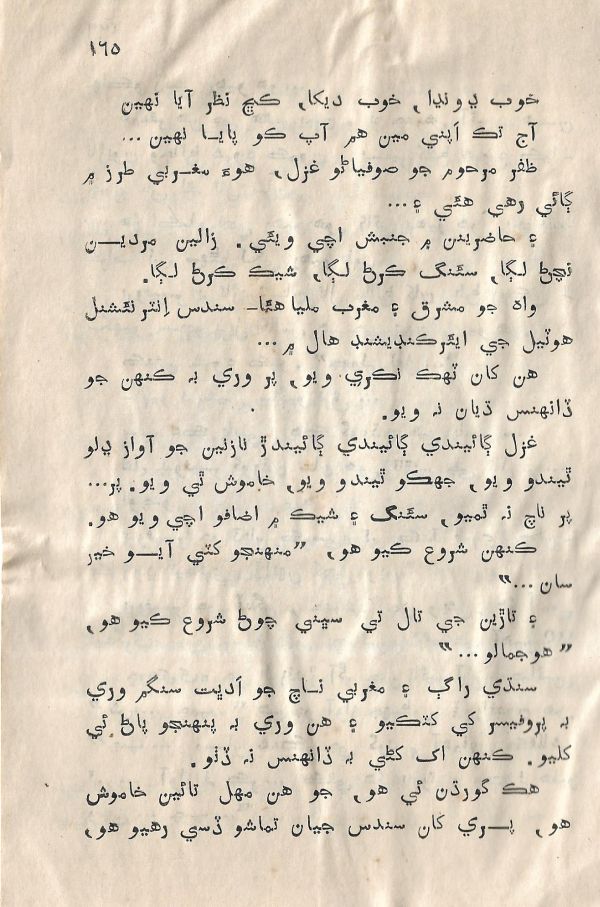 ١٦٥
خوب ڍونڍا, خوب ديکا, ڪڇ نظر آيا نهين
آج تڪ اَپني مين هم آپ ڪو پايا نهين...
ظفر مرحوم جو صوفياڻو غزل, هوءَ مغربي طرز ۾
ڳائي رهي هئي ۽...
۽ حاضرينن ۾ جنبش اچي ويئي. زالين مردين
نچڻ لڳا, سئنگ ڪرڻ لڳا, شيڪ ڪرڻ لڳا.
واهه جو مشرق ۽ مغرب مليا هئا- سندس اِنٽرنئشنل
هوٽيل جي ايئرڪنڊيشنڊ هال ۾...
هن کان ٽهڪ نڪري ويو, پر وري به ڪنهن جو
ڏانهنس ڌيان نه ويو.
غزل ڳائيندي ڳائيندي ڳائيندڙ نازنين جو آواز ڍلو
ٿيندو ويو, جهڪو ٿيندو ويو, خاموش ٿي ويو. پر...
پر ناچ نه ٿميو, سئنگ ۽ شيڪ ۾ اضافو اچي ويو هو.
ڪنهن شروع ڪيو هو, ”منهنجو کٽي آيو خير
سان...“
۽ تاڙين جي تال تي سڀني چوڻ شروع ڪيو هو,
”هوجمالو...“
سنڌي راڳ ۽ مغربي ناچ جو اَڍيٽ سنگم وري
به پروفيسر کي کٽڪيو ۽ هن وري به پنهنجو پاڻ ئي
کليو. ڪنهن اک کڻي به ڏانهنس نه ڏٺو.
هڪ گورڌن ئي هو, جو هن مهل تائين خاموش
هو, پري کان سندس جيان تماشو ڏسي رهيو هو,